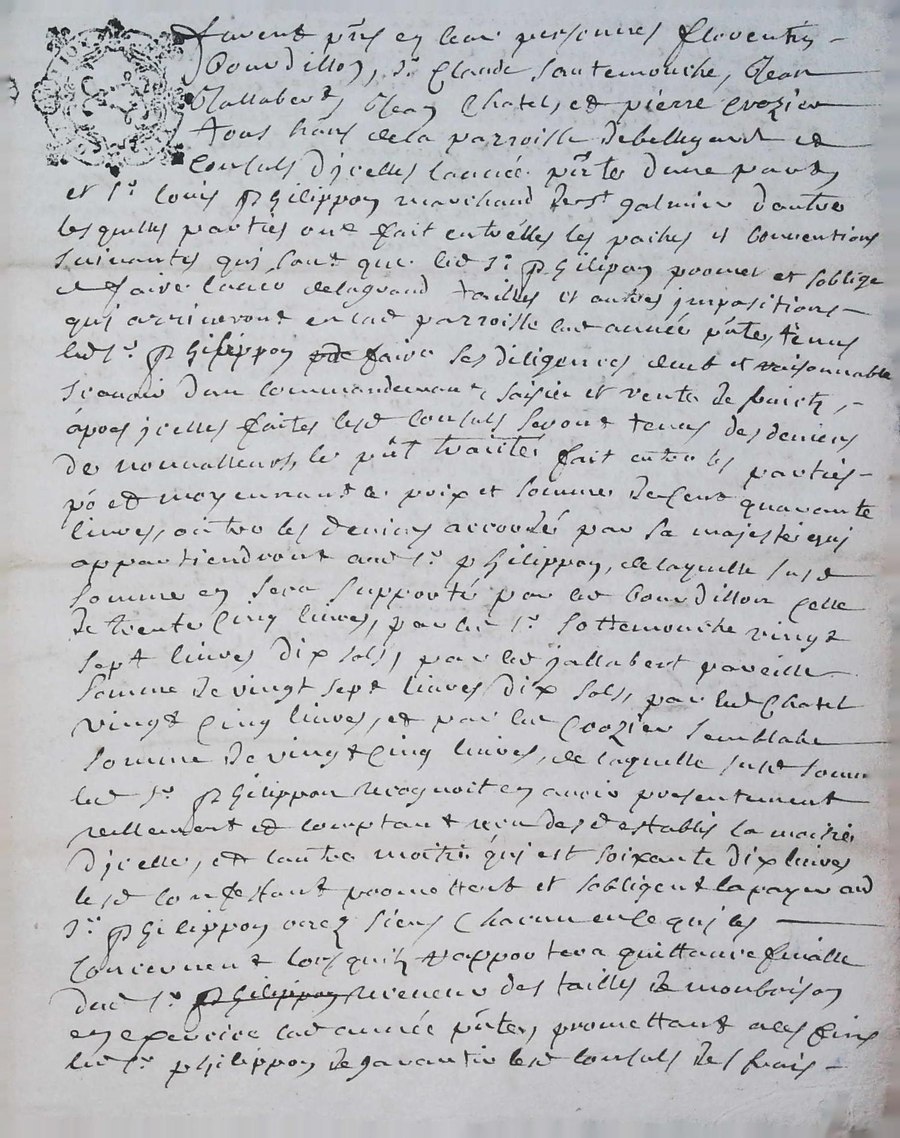 furent pn̄s en leur personnes fleurentin
Bourdillon, sr Claude sautemouche, Jean
Jallabert, Jean Chatel, et pierre Crozier
tous hans de la parroisse de bellegarde et
Consuls d'jcelles l'année pn̄te d'une part,
et sr louis philippon marchand de st galmier d'autre
lesquelles parties ont fait entr'elles les paches et Conventions
suivantes qui sont que led sr philipon promet et s'oblige
de faire la de la grand tailles et autres jmpositions
qui arriveront en lad parroisse lad année pn̄te, tenus
led sr philippon faire ses diligences deub et raisonnable
scavoir d'un Commandement, saisies et vente de fruicts,
apres jcelles faites lesd Consuls seront tenus des deniers
de nonvalleurs, le pn̄t traitté fait entre les parties
po et moyennant le prix et somme de Cent quarante
livres, outre les deniers accordés par sa majesté qui
appartiendront aud sr philippon, de laquelle susd
somme en sera supporté par led bourdillon Celle
de trente Cinq livres, par led sr sottemouche vingt
sept livres dix sols, par led jallabert pareille
somme de vingt sept livres dix sols, par led Chatel
vingt Cinq livres, et par led Crozier semblable
somme de vingt Cinq livres, de laquelle susd somme
led sr philippon recognoit en avoir presentement
reellement et Comptant receu desd establis la moitié
d'jcelle, et l'autre moitié qui est soixante dix livres
lesd Confessant promettent et s'obligent la payer aud
sr philippon siens Chacun en Ce qui les
Concernent lors qu'il rapportera quittance finalle
dud sr philippon receveur des tailles de monbrison
en exercice lad année pn̄te, promettant a ces fins
led sr philippon de garantir lesd Consuls des frais